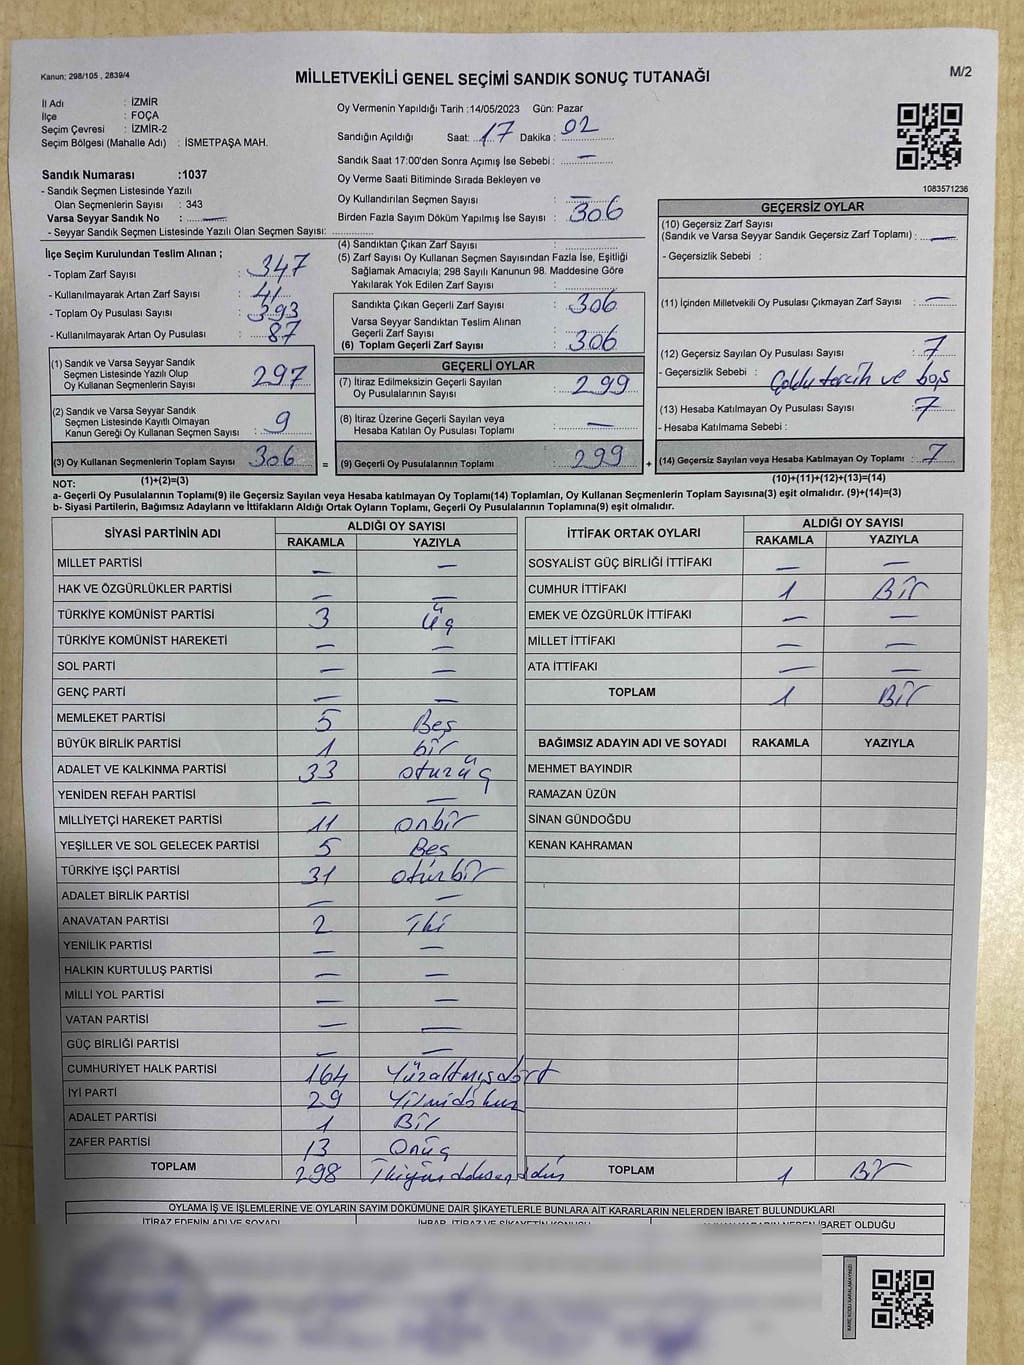 Kanun; 298/105 , 2839/4
MİLLETVEKİLİ GENEL SEÇİMİ SANDIK SONUÇ TUTANAĞI
M/2
İl Adı : İZMİR
İlçe : FOÇA
Seçim Çevresi : İZMİR-2
Seçim Bölgesi (Mahalle Adı) : İSMETPAŞA MAH.
Oy Vermenin Yapıldığı Tarih :14/05/2023 Gün: Pazar
Sandığın Açıldığı Saat: 17 Dakika : 02
Sandık Saat 17:00'den Sonra Açımış İse Sebebi : —
Oy Verme Saati Bitiminde Sırada Bekleyen ve
Oy Kullandırılan Seçmen Sayısı : —
Birden Fazla Sayım Döküm Yapılmış İse Sayısı : 306
1083571236
Sandık Numarası :1037
- Sandık Seçmen Listesinde Yazılı
Olan Seçmenlerin Sayısı : 343
Varsa Seyyar Sandık No : —
- Seyyar Sandık Seçmen Listesinde Yazılı Olan Seçmen Sayısı:
İlçe Seçim Kurulundan Teslim Alınan ;
- Toplam Zarf Sayısı : 347
- Kullanılmayarak Artan Zarf Sayısı : 41
- Toplam Oy Pusulası Sayısı : 393
- Kullanılmayarak Artan Oy Pusulası : 87
(1) Sandık ve Varsa Seyyar Sandık
Seçmen Listesinde Yazılı Olup
Oy Kullanan Seçmenlerin Sayısı 297
(2) Sandık ve Varsa Seyyar Sandık
Seçmen Listesinde Kayıtlı Olmayan
Kanun Gereği Oy Kullanan Seçmen Sayısı : 9
(3) Oy Kullanan Seçmenlerin Toplam Sayısı 306
(1)+(2)=(3)
(4) Sandıktan Çıkan Zarf Sayısı :
(5) Zarf Sayısı Oy Kullanan Seçmen Sayısından Fazla İse, Eşitliği
Sağlamak Amacıyla; 298 Sayılı Kanunun 98. Maddesine Göre
Yakılarak Yok Edilen Zarf Sayısı :
Sandıkta Çıkan Geçerli Zarf Sayısı : 306
Varsa Seyyar Sandıktan Teslim Alınan
Geçerli Zarf Sayısı :
(6) Toplam Geçerli Zarf Sayısı : 306
GEÇERLİ OYLAR
(7) İtiraz Edilmeksizin Geçerli Sayılan
Oy Pusulalarının Sayısı : 299
(8) İtiraz Üzerine Geçerli Sayılan veya
Hesaba Katılan Oy Pusulası Toplamı : —
= (9) Geçerli Oy Pusulalarının Toplamı : 299 +
GEÇERSİZ OYLAR
(10) Geçersiz Zarf Sayısı
(Sandık ve Varsa Seyyar Sandık Geçersiz Zarf Toplamı) : —
- Geçersizlik Sebebi :
(11) İçinden Milletvekili Oy Pusulası Çıkmayan Zarf Sayısı : —
(12) Geçersiz Sayılan Oy Pusulası Sayısı : 7
- Geçersizlik Sebebi : Çoklu tercih ve boş
(13) Hesaba Katılmayan Oy Pusulası Sayısı : 7
- Hesaba Katılmama Sebebi :
(14) Geçersiz Sayılan veya Hesaba Katılmayan Oy Toplamı : 7
(10)+(11)+(12)+(13)=(14)
NOT:
a- Geçerli Oy Pusulalarının Toplamı(9) ile Geçersiz Sayılan veya Hesaba katılmayan Oy Toplamı(14) Toplamları, Oy Kullanan Seçmenlerin Toplam Sayısına(3) eşit olmalıdır. (9)+(14)=(3)
b- Siyasi Partilerin, Bağımsız Adayların ve İttifakların Aldığı Ortak Oyların Toplamı, Geçerli Oy Pusulalarının Toplamına(9) eşit olmalıdır.
SİYASİ PARTİNİN ADI ALDIĞI OY SAYISI
RAKAMLA YAZIYLA
MİLLET PARTİSİ — —
HAK VE ÖZGÜRLÜKLER PARTİSİ — —
TÜRKİYE KOMÜNİST PARTİSİ 3 Üç
TÜRKİYE KOMÜNİST HAREKETİ — —
SOL PARTİ — —
GENÇ PARTİ — —
MEMLEKET PARTİSİ 5 Beş
BÜYÜK BİRLİK PARTİSİ 1 bir
ADALET VE KALKINMA PARTİSİ 33 otuzüç
YENİDEN REFAH PARTİSİ — —
MİLLİYETÇİ HAREKET PARTİSİ 11 onbir
YEŞİLLER VE SOL GELECEK PARTİSİ 5 Beş
TÜRKİYE İŞÇİ PARTİSİ 31 otuzbir
ADALET BİRLİK PARTİSİ — —
ANAVATAN PARTİSİ 2 İki
YENİLİK PARTİSİ — —
HALKIN KURTULUŞ PARTİSİ — —
MİLLİ YOL PARTİSİ — —
VATAN PARTİSİ — —
GÜÇ BİRLİĞİ PARTİSİ — —
CUMHURİYET HALK PARTİSİ 164 Yüzaltmışdört
İYİ PARTİ 29 Yirmidokuz
ADALET PARTİSİ 1 Bir
ZAFER PARTİSİ 13 Onüç
TOPLAM 298
İTTİFAK ORTAK OYLARI ALDIĞI OY SAYISI
RAKAMLA YAZIYLA
SOSYALİST GÜÇ BİRLİĞİ İTTİFAKI — —
CUMHUR İTTİFAKI 1 Bir
EMEK VE ÖZGÜRLÜK İTTİFAKI — —
MİLLET İTTİFAKI — —
ATA İTTİFAKI — —
TOPLAM 1 Bir
BAĞIMSIZ ADAYIN ADI VE SOYADI RAKAMLA YAZIYLA
MEHMET BAYINDIR
RAMAZAN ÜZÜN
SİNAN GÜNDOĞDU
KENAN KAHRAMAN
TOPLAM 1 Bir
OYLAMA İŞ VE İŞLEMLERİNE VE OYLARIN SAYIM DÖKÜMÜNE DAİR ŞİKAYETLERLE BUNLARA AİT KARARLARIN NELERDEN İBARET BULUNDUKLARI
İTİRAZ EDENİN ADI VE SOYADI İHBAR, İTİRAZ VE ŞİKAYETİN KONUSU NEDEN İBARET OLDUĞU
KARE KODU KARALAMAYINIZ!